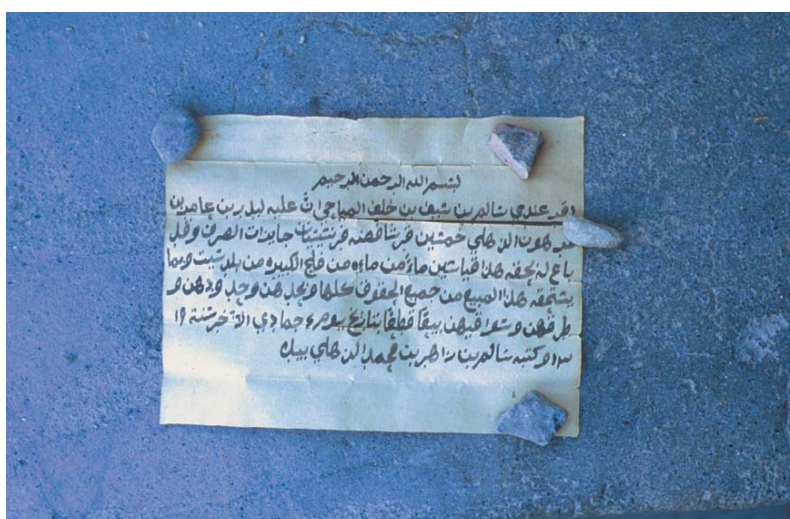 بسم الله الرحمن الرحيم
اقر عندي سالم بن سيف بن خلف المياحي ان عليه لبدر بن عامر بن
الذهلي خمسين قرشا فضة جايزات الصرف وقد
باع له بحقه هذا قياسين ماء من ماءه من فلج الكبير من بلد سيت وبما
يستحقه هذا المبيع من جميع الحقوق كلها وبحدهن وحدودهن و
طرقهن وسواقيهن بيعا قطعا بتاريخ يوم جمادي الآخر سنة
وكتبه سالم بن زاهر بن محمد الذهلي بيده